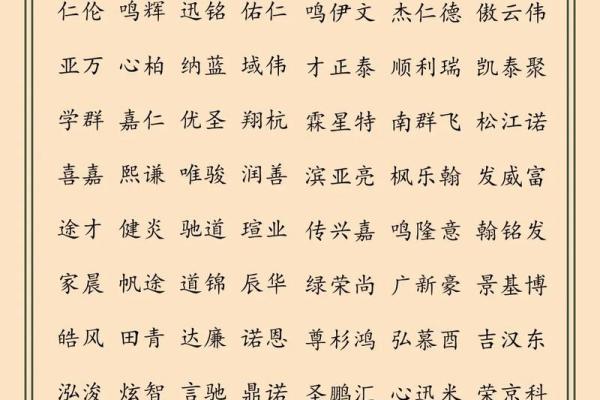 仁伦 鸣辉 迅铭 佑仁 鸣伊文 杰仁德 傲云伟
亚万 心柏 纳蓝 域伟 才正泰 顺利瑞 凯泰聚
学群 嘉仁 优圣 翔杭 霖星特 南群飞 松江诺
喜嘉 熙谦 唯骏 润善 滨亚亮 枫乐翰 发威富
途才 健炎 驰道 瑄业 传兴嘉 鸣隆意 翰铭发
家晨 帆途 道锦 辰华 绿荣尚 广新豪 景基博
皓风 田青 达廉 诺恩 尊杉鸿 弘慕酉 吉汉东
泓浚 炫智 言驰 鼎诺 圣鹏汇 心迅米 荣京科